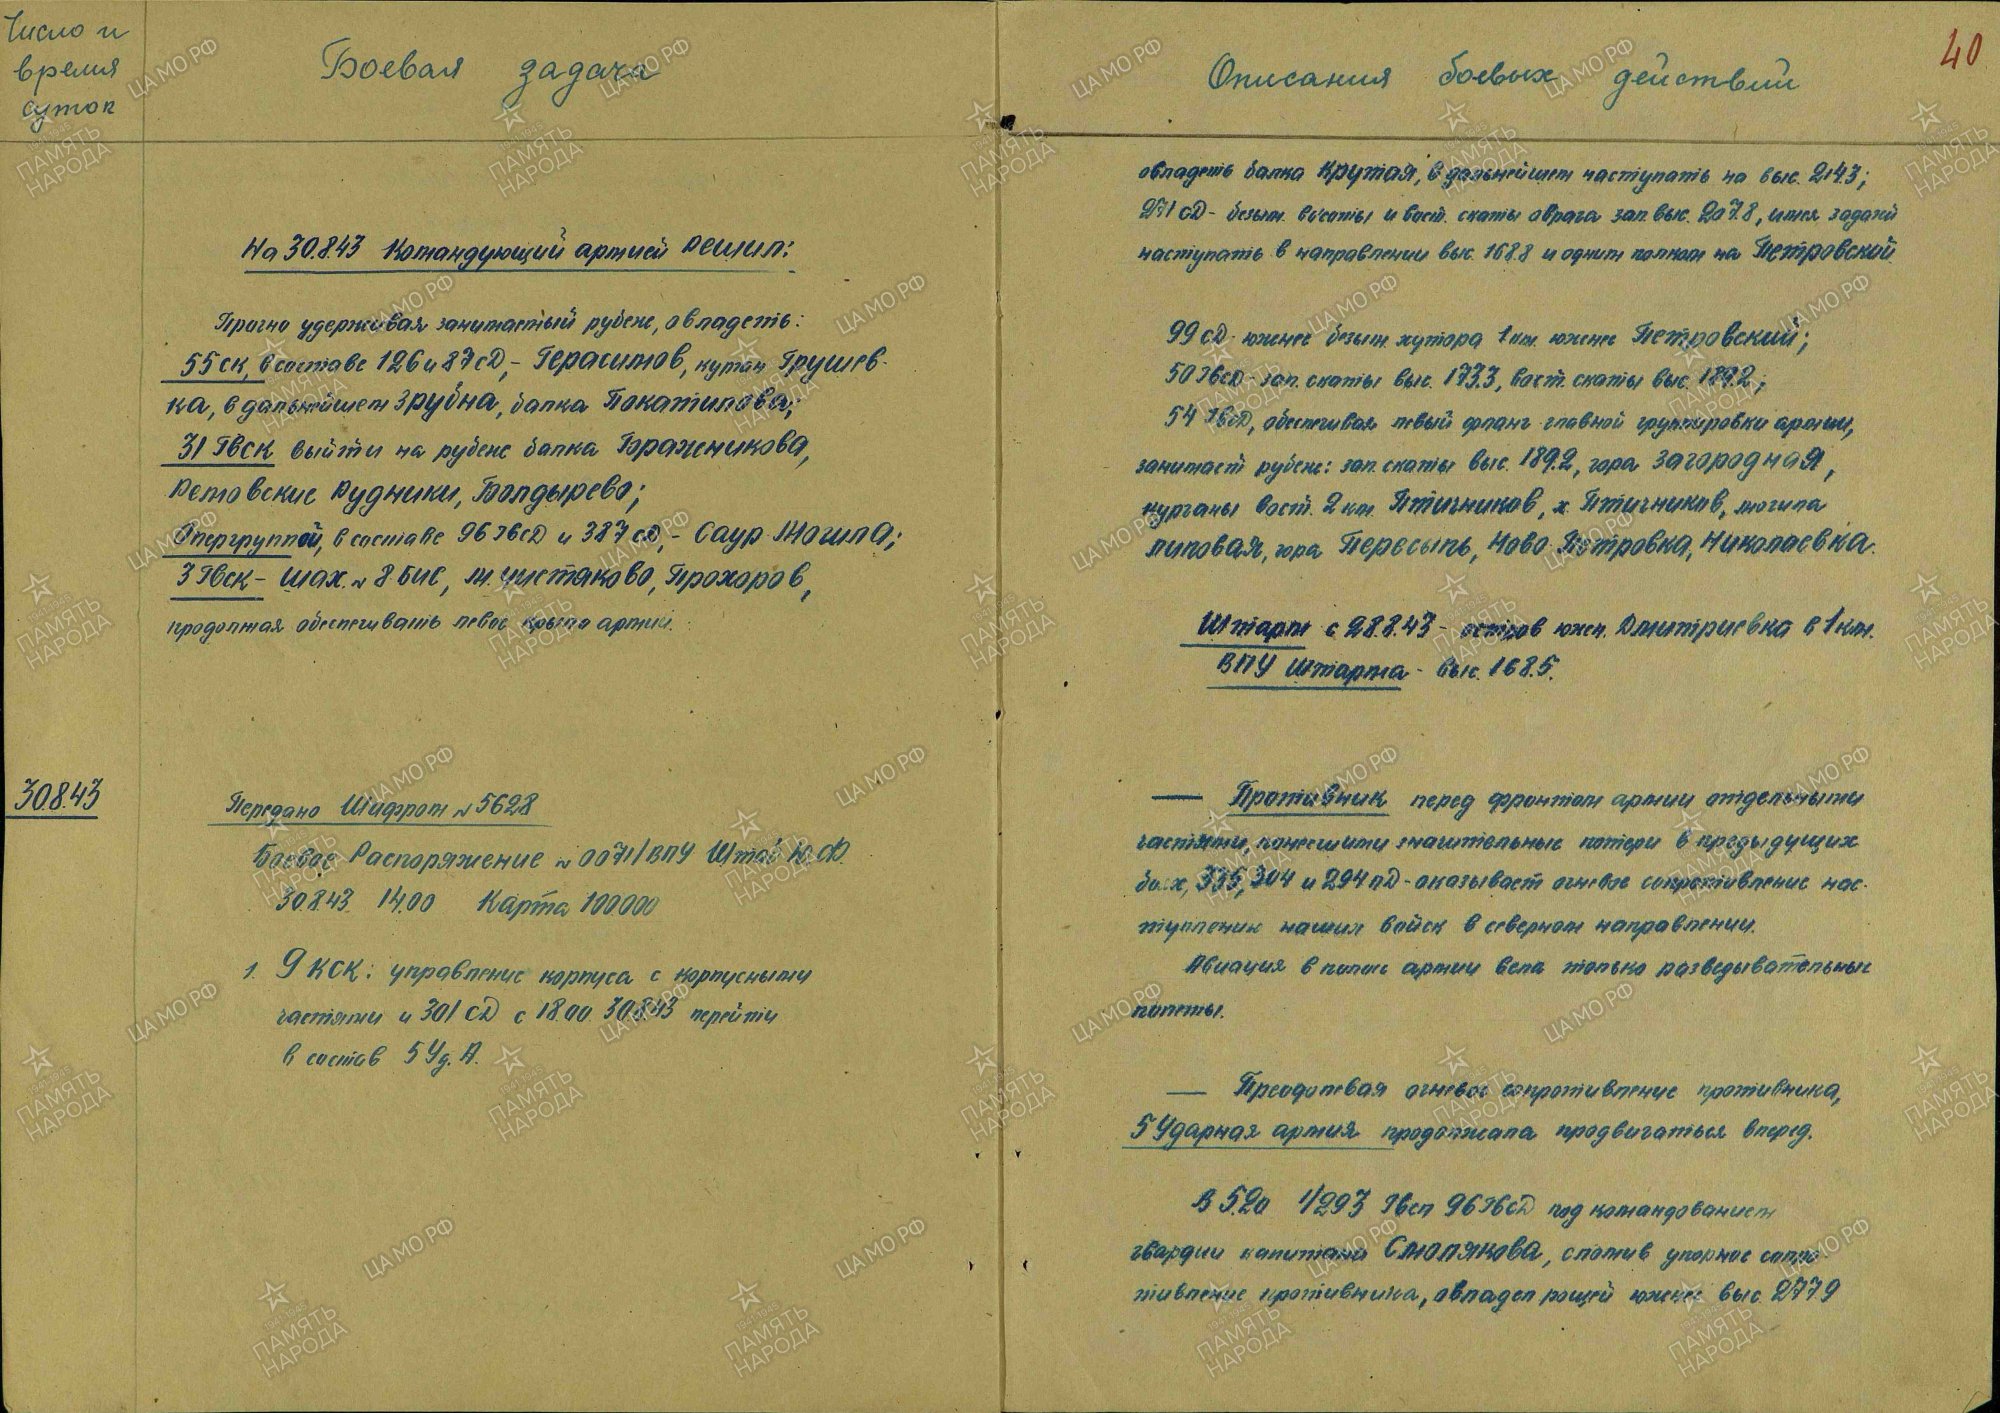 Число и
время
суток
Боевая задача
На 30.8.43 Командующий армией решил:
Прочно удерживая занимаемый рубеж, овладеть:
55 ск, в составе 126 и 87 сД, - Герасимов, курган Грушев-
ка, в дальнейшем Зрубна, балка Покатилова;
31 Гвск выйти на рубеж балка Бражникова,
Ретовские Рудники, Болдырево;
Опергруппой, в составе 96 ГвсД и 387 сД, - Саур-Могила;
3 Гвск - шах. № 8 бис, м. Чистяково, Прохоров,
продолжая обеспечивать левое крыло армии.
30.8.43
Передано Шифром № 5628
Боевое Распоряжение № 0071/ВПУ Штаб Ю.Ф.
30.8.43 14.00 Карта 100.000
1. 9 КСК: управление корпуса с корпусными
частями и 301 сД с 18.00 30.8.43 перейти
в состав 5 Уд. А.
Описания боевых действий
40
овладеть балка Крутая, в дальнейшем наступать на выс. 214.3;
271 сД - безым. высоты и вост. скаты оврага зап. выс. 207.8, имея задачей
наступать в направлении выс. 168.8 и одним полком на Петровский.
99 сД - южнее безым. хутора 1 км. южнее Петровский;
50 ГвсД - зап. скаты выс. 173.3, вост. скаты выс. 189.2;
54 ГвсД, обеспечивая левый фланг главной группировки армии,
занимает рубеж: зап. скаты выс. 189.2, гора Загородная,
курганы вост. 2 км. Птичников, х. Птичников, могила
Липовая, гора Пересыпь, Ново Петровка, Николаевка.
Штарм с 28.8.43 - остров южн. Дмитриевка в 1 км.
ВПУ Штарма - выс. 168.5.
— Противник перед фронтом армии отдельными
частями, понесшими значительные потери в предыдущих
боях, 335, 304 и 294 пД - оказывает огневое сопротивление нас-
туплению наших войск в северном направлении.
Авиация в полосе армии вела только разведывательные
полеты.
— Преодолевая огневое сопротивление противника,
5 Ударная армия продолжала продвигаться вперед.
В 5.20 1/293 Гвсп 96 ГвсД под командованием
гвардии капитана Смолякова, сломив упорное сопро-
тивление противника, овладел рощей южнее выс. 277.9
ПАМЯТЬ
НАРОДА
1941-1945
ЦАМО РФ